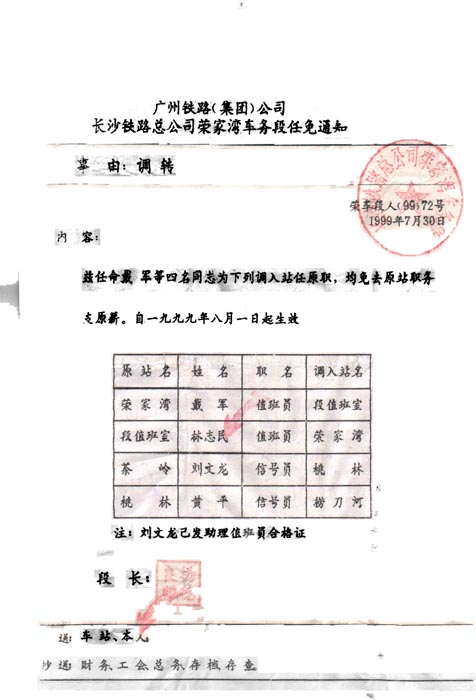 广州铁路(集团)公司
长沙铁路总公司荣家湾车务段任免通知
事 由: 调 转
荣车段人(99)72号
1999年7月30日
内 容:
兹任命戴 军等四名同志为下列调入站任原职，均免去原站职务
支原薪。自一九九九年八月一日起生效
原 站 名 姓 名 职 名 调入站名
荣 家 湾 戴 军 值班员 段值班室
段值班室 林志民 值班员 荣 家 湾
茶 岭 刘文龙 信号员 桃 林
桃 林 黄 平 信号员 捞刀河
注: 刘文龙已发助理值班员合格证
段 长:
送: 车站、本人
抄送: 财务工会总务存档存查